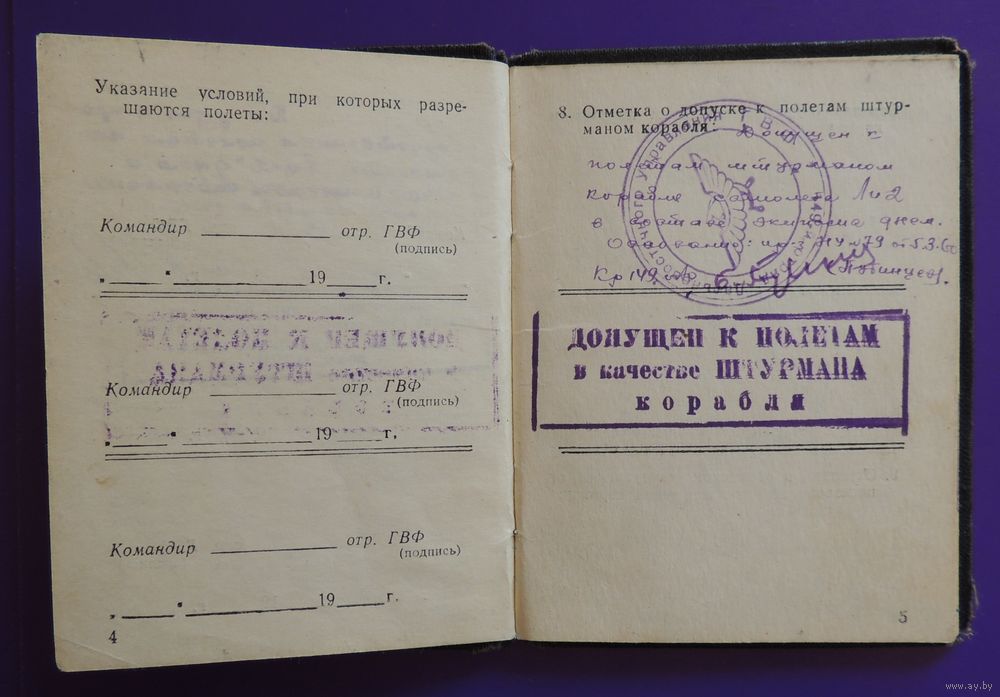 Указание условий, при которых разре-
шаются полеты:
Командир ___________ отр. ГВФ
(подпись)
„_____" ___________ 19____г.
Командир ___________ отр. ГВФ
(подпись)
„_____" ___________ 19____г,
Командир ___________ отр. ГВФ
(подпись)
„_____" ___________ 19____г.
4
8. Отметка о допуске к полетам штур-
маном корабля: Допущен к
полетам штурманом
корабля самолета Ли2
в составе экипажа днем.
от 5.3.60
Кр 149 ло
ДОПУЩЕН К ПОЛЕТАМ
в качестве ШТУРМАНА
корабля
5
www.ay.by